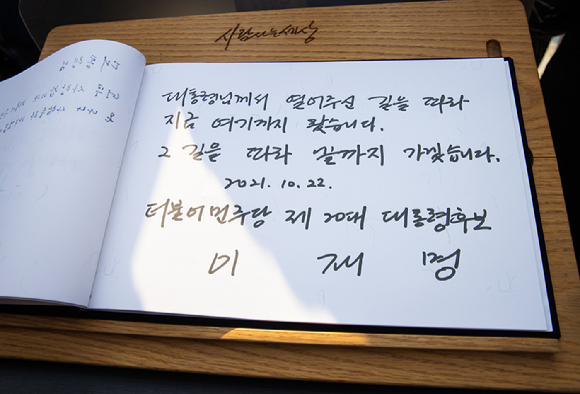 사람사는세상
대통령님께서 열어주신 길을 따라
지금 여기까지 왔습니다.
그 길을 따라 끝까지 가겠습니다.
2021. 10. 22.
더불어민주당 제 20대 대통령후보
이 재 명